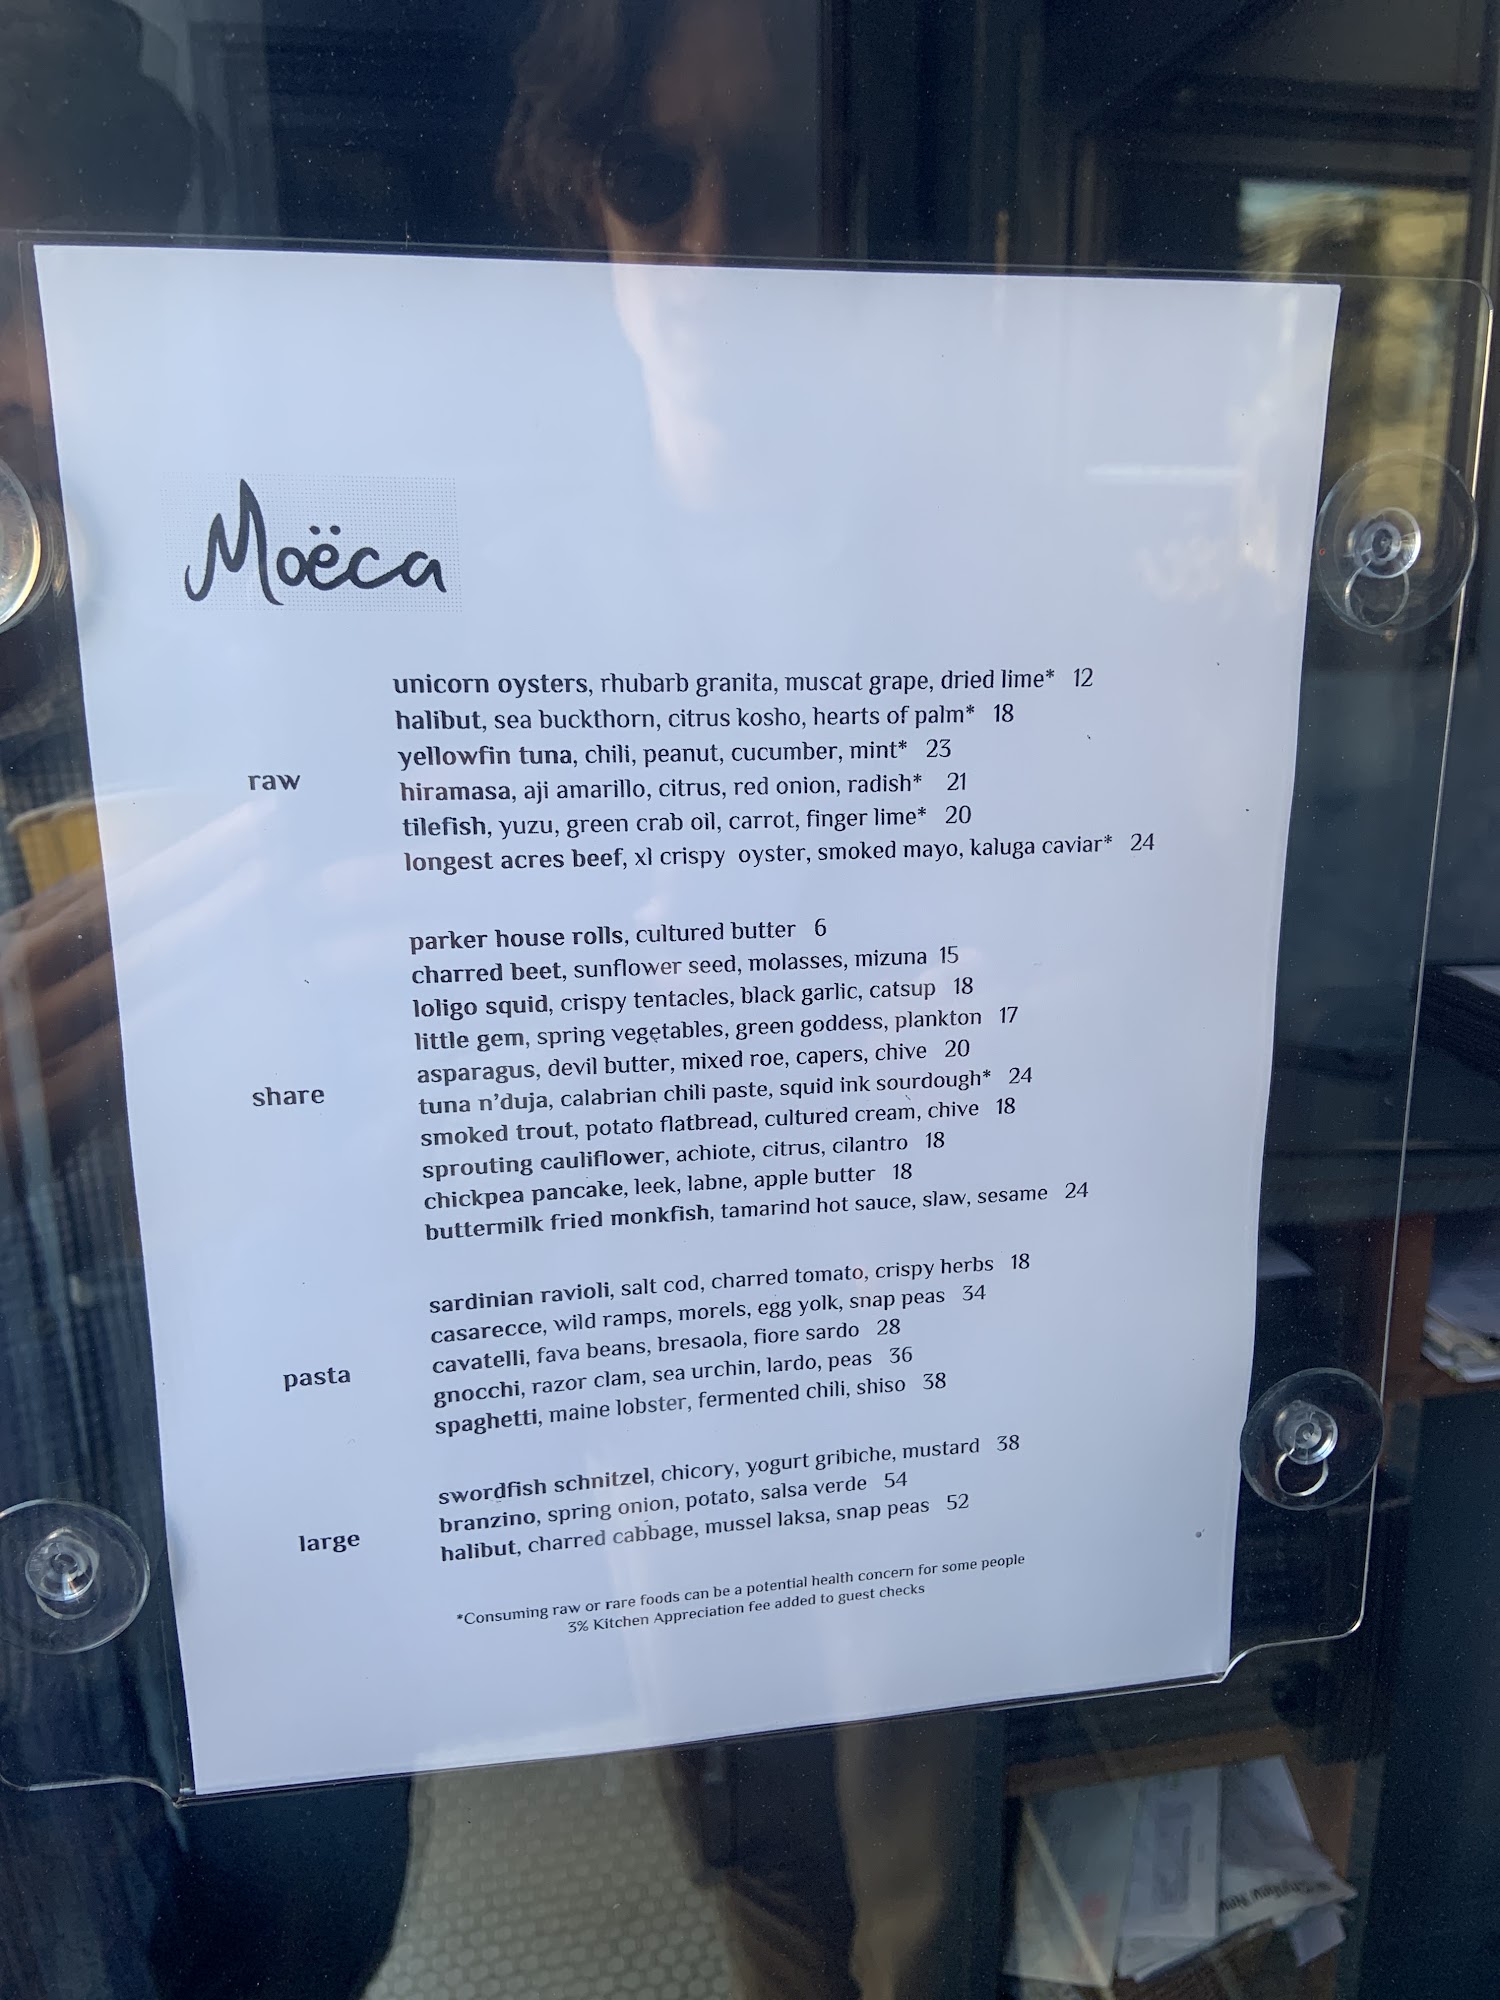 Moëca
raw
unicorn oysters, rhubarb granita, muscat grape, dried lime* 12
halibut, sea buckthorn, citrus kosho, hearts of palm* 18
yellowfin tuna, chili, peanut, cucumber, mint* 23
hiramasa, aji amarillo, citrus, red onion, radish* 21
tilefish, yuzu, green crab oil, carrot, finger lime* 20
longest acres beef, xl crispy oyster, smoked mayo, kaluga caviar* 24
share
parker house rolls, cultured butter 6
charred beet, sunflower seed, molasses, mizuna 15
loligo squid, crispy tentacles, black garlic, catsup 18
little gem, spring vegetables, green goddess, plankton 17
asparagus, devil butter, mixed roe, capers, chive 20
tuna n'duja, calabrian chili paste, squid ink sourdough* 24
smoked trout, potato flatbread, cultured cream, chive 18
sprouting cauliflower, achiote, citrus, cilantro 18
chickpea pancake, leek, labne, apple butter 18
buttermilk fried monkfish, tamarind hot sauce, slaw, sesame 24
pasta
sardinian ravioli, salt cod, charred tomato, crispy herbs 18
casarecce, wild ramps, morels, egg yolk, snap peas 34
cavatelli, fava beans, bresaola, fiore sardo 28
gnocchi, razor clam, sea urchin, lardo, peas 36
spaghetti, maine lobster, fermented chili, shiso 38
large
swordfish schnitzel, chicory, yogurt gribiche, mustard 38
branzino, spring onion, potato, salsa verde 54
halibut, charred cabbage, mussel laksa, snap peas 52
*Consuming raw or rare foods can be a potential health concern for some people
3% Kitchen Appreciation fee added to guest checks